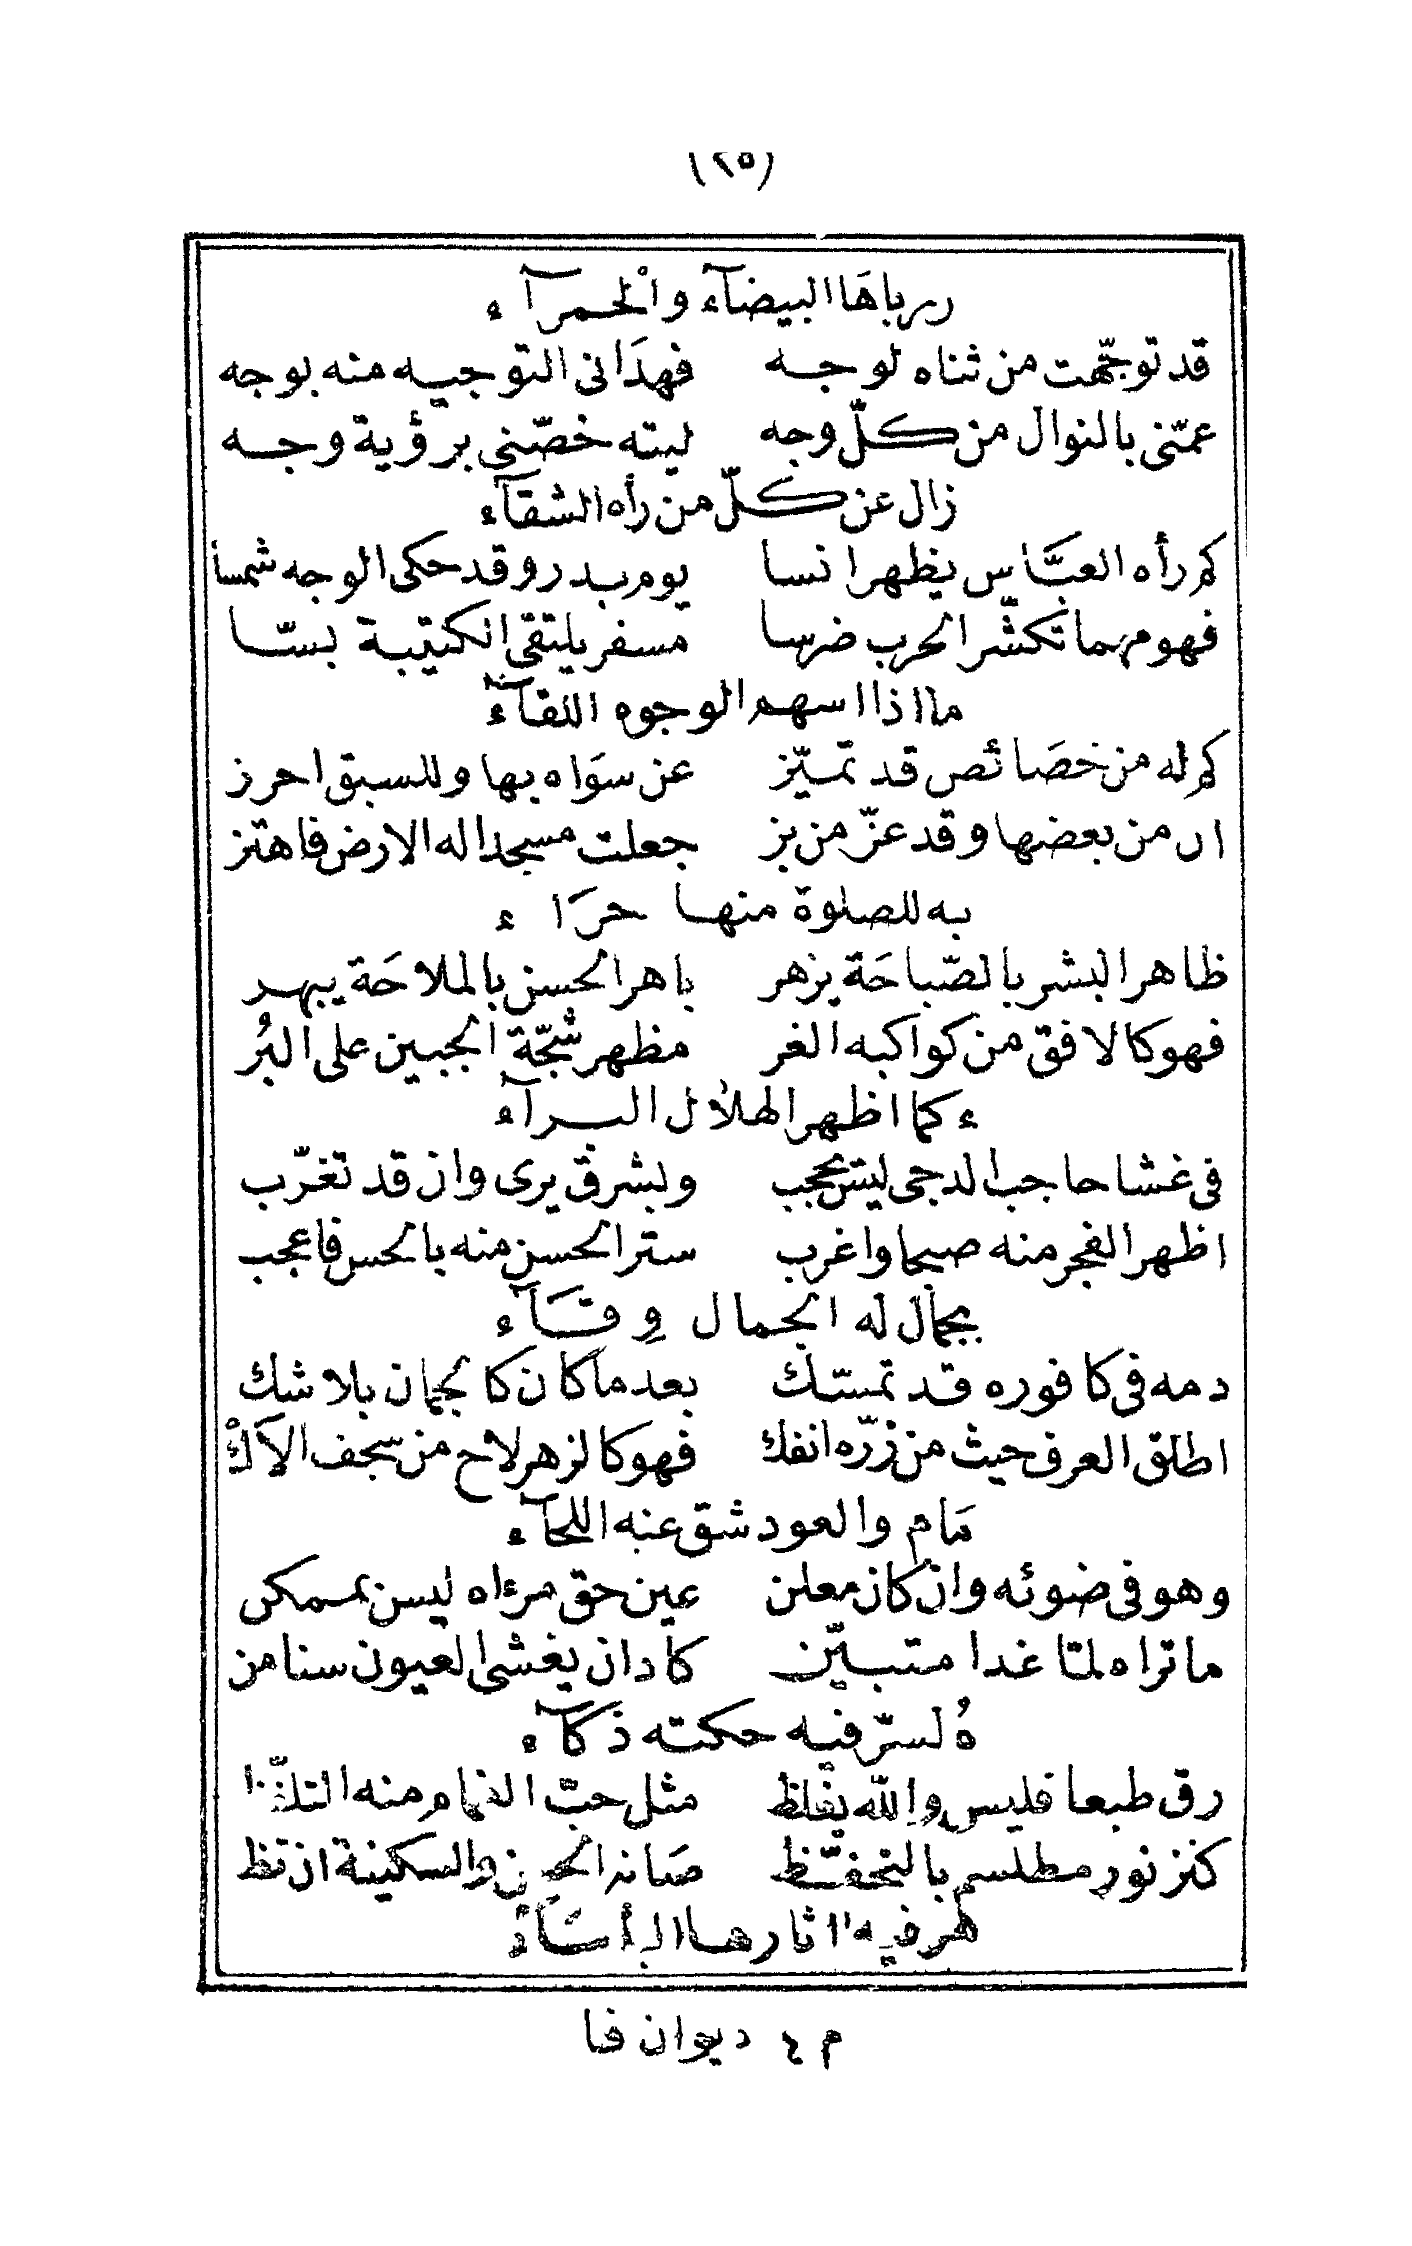 (٢٥)
ر رباهَا البيضآء والحمرآء
قد توجّهت من ثناه لوجـه فهدَانى التوجيـه منه بوجه
عمّنى بالنوال من كلّ وجه ليته خصّنى برؤية وجـه
زال عن كلّ من رأه الشقآء
كم رأه العبَّاس يظهر انسا يوم بـدر وقد حكى الوجه شمسا
فهو مهما تكشّر الحرب ضرسا مسفر يلتقى الكتيبـة بسّـا
ما اذا اسهم الوجوه اللقآء
كم له من خصَائص قد تمـيّز عن سوَاه بها وللسبق احرز
ان من بعضها وقد عزّ من بز جعلت مسجدا له الارض فاهتز
بـه للصلوة منهـا حرَاء
ظاهر البشر بالصّباحَة يزهر باهر الحسن بالملاحَة يبهـر
فهو كالافق من كواكبه الغر مظهر شجّة الجبين على البُر
ء كما اظهر الهلال البـرآء
فى غشا حاجب الدجى ليس يحجب وبشرق يرى وان قد تغـرّب
اظهر الفجر منه صبحا واغرب ستر الحسن منه بالحس فاعجب
بجمال له الجمال وِقـآء
دمه فى كافوره قـد تمسّـك بعد ما كان كالجمان بلا شك
اطلق العرف حيث من زرّه انفك فهو كالزهر لاح من سجف الاك
مَام والعود شق عنه اللحآء
وهو فى ضوئه وان كان معلن عين حق مرءاه ليس بمـمكن
ما تراه لمّا غدا متبـيّن كاد ان يغشى العيون سنا من
هُ لسرّ فيـه حكته ذكآء
رق طبعا فليس والله يغلظ مثل حبّ الغمام منه
كنز نور مطلسم بالتحفّـظ صَانه والسكينة ان تظ
هر فيـه اثارهـا البأسَآء
م ٤ ديوان فا